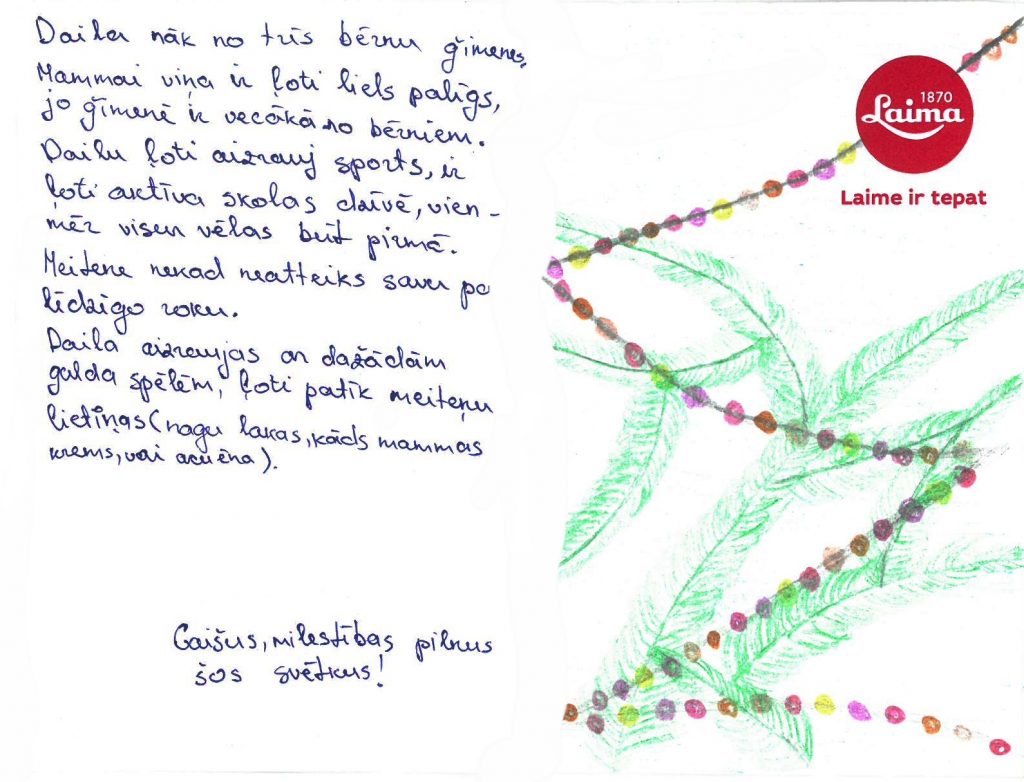 Daila nāk no trīs bērnu ģimenes.
Mammai viņa ir ļoti liels palīgs,
jo ģīmenē ir vecākā no bērniem.
Dailu ļoti aizrauj sports, ir
ļoti aktīva skolas dzīvē, vien-
mēr visur vēlas būt pirmā.
Meitene nekad neatteiks savu pa
līdzīgo roku.
Daila aizraujas ar dažādām
galda spēlēm, ļoti patīk meiteņu
lietiņas (nagu lakas, kāds mammas
krems, vai acu ēna).
Gaišus, mīlestības pilnus
šos svētkus!
1870
Laima
Laime ir tepat